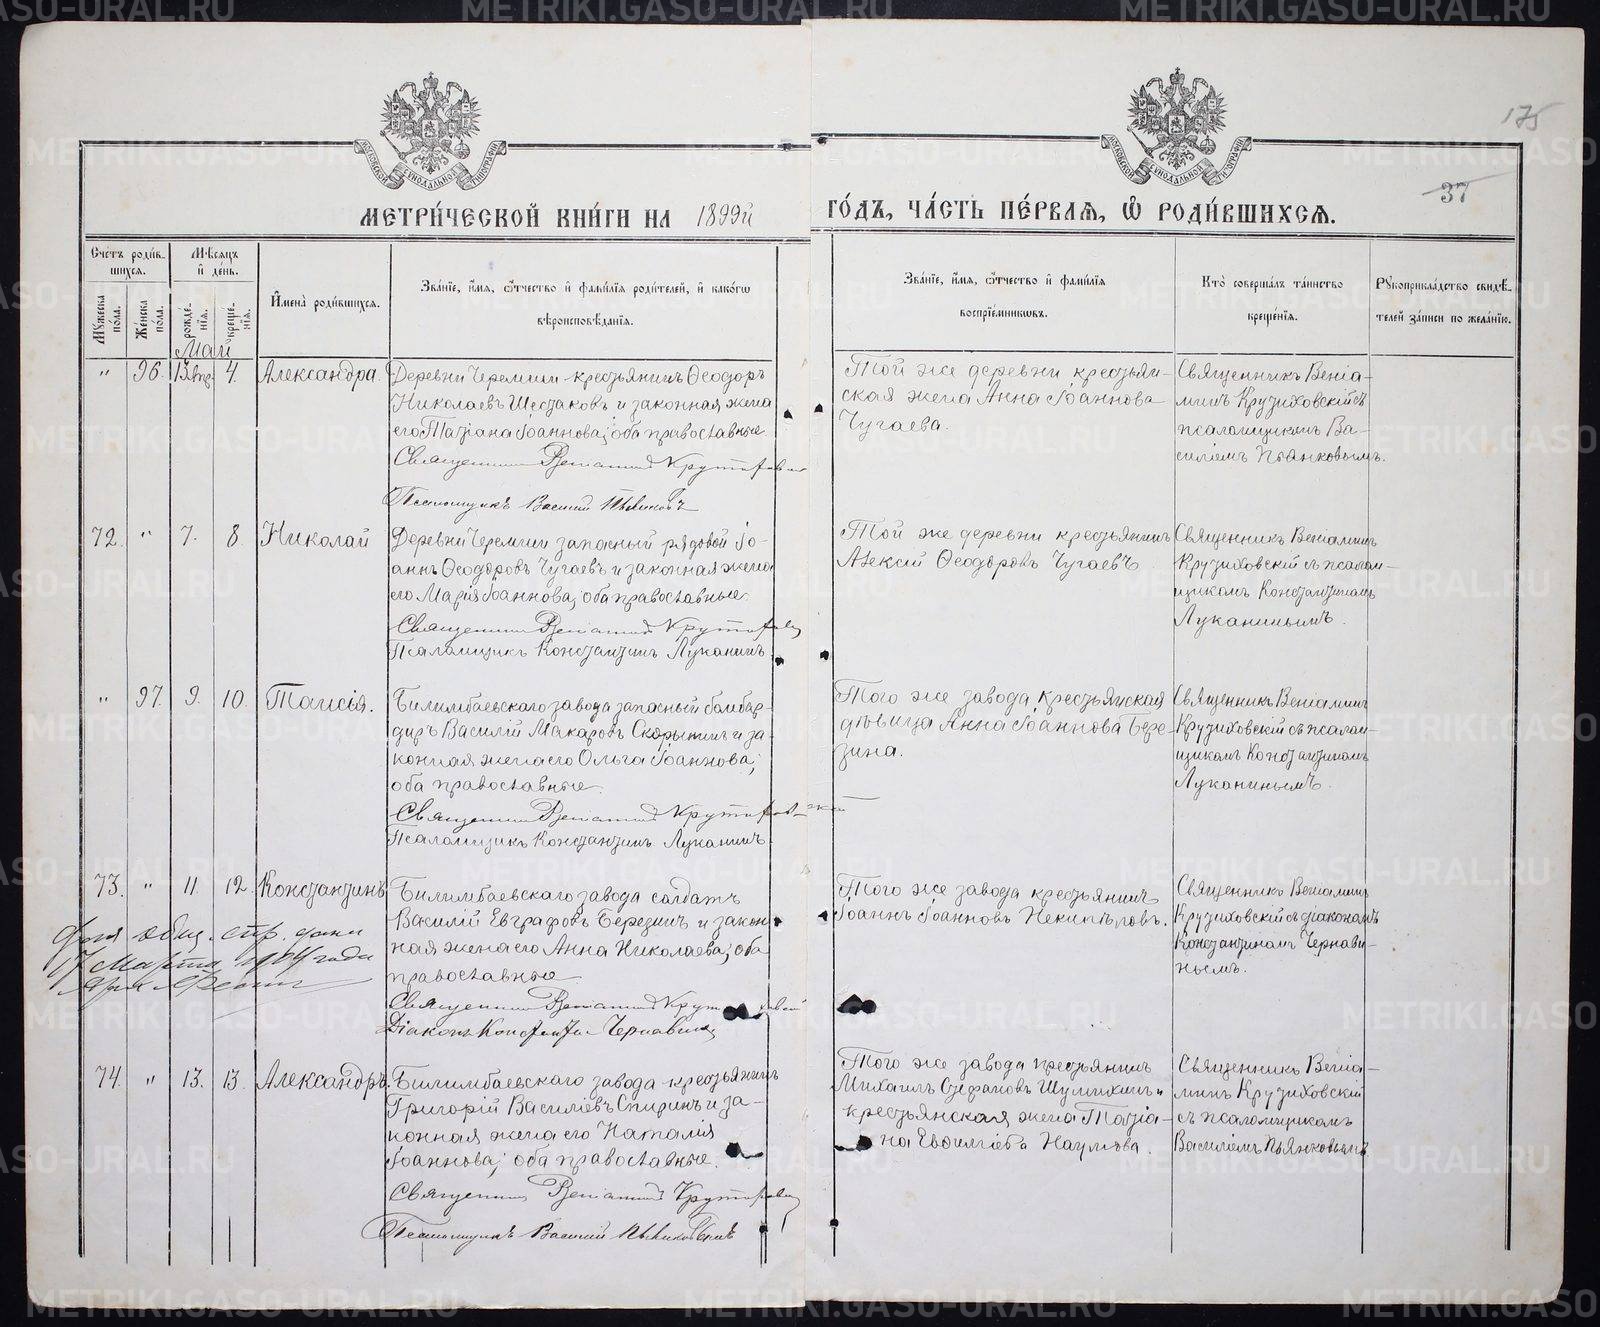 175
37
МЕТРИ́ЧЕСКОЙ КНИ́ГИ НА 1899й ГО́ДЪ, ЧА́СТЬ ПЕ́РВАѦ, Ѡ҆ РОДИ́ВШИХСѦ.
Сче́тъ роди́в-
шихся.
Мѣ́сяцъ
и҆ де́нь.
Му́жеска по́ла.
Же́нска по́ла.
рожде́-нїѧ.
креще́-нїѧ.
И҆мена̀ роди́вшихся.
Зва́нїе, и҆́мѧ, ѻ҆́тчество и҆ фамі́лїѧ роди́телей, и҆ како́гѡ
вѣроисповѣ́данїѧ.
Зва́нїе, и҆́мѧ, ѻ҆́тчество и҆ фамі́лїѧ
воспрїе́мникѡвъ.
Кто̀ соверша́лъ та́инство
креще́нїѧ.
Рꙋкоприкла́дство свидѣ́-
телей за́писи по жела́нїю.
Май
" 96. 13 апр. 4. Александра.
Деревни Черемши крестьянинъ Ѳеодоръ
Николаевъ Шестаковъ и законная жена
его Татіана Іоаннова; оба православные
Священникъ Веніаминъ Крутиховскій
Псаломщикъ Василій Пьянковъ
Той же деревни крестьян-
ская жена Анна Іоаннова
Чугаева.
Священникъ Веніа-
минъ Крутиховскій съ
псаломщикомъ Ва-
силіемъ Пьянковымъ.
72. " 7. 8. Николай
Деревни Черемши запасный рядовой Іо-
аннъ Ѳеодоровъ Чугаевъ и законная жена
его Марія Іоаннова; оба православные.
Священникъ Веніаминъ Крутиховскій
Псаломщикъ Константинъ Луканинъ.
Той же деревни крестьянинъ
Алексій Ѳеодоровъ Чугаевъ
Священникъ Веніаминъ
Крутиховскій съ псалом-
щикомъ Константиномъ
Луканинымъ.
" 97. 9. 10. Таисія.
Билимбаевскаго завода запасный бомбар-
диръ Василій Макаровъ Скорынинъ и за-
конная жена его Ольга Іоаннова;
оба православные.
Священникъ Веніаминъ Крутиховскій
Псаломщикъ Константинъ Луканинъ.
Того же завода крестьянская
дѣвица Анна Іоаннова Бере-
зина.
Священникъ Веніаминъ
Крутиховскій съ псалом-
щикомъ Константиномъ
Луканинымъ.
73. " 11. 12. Константинъ
17 Марта года
Билимбаевскаго завода солдатъ
Василій Евграфовъ Березинъ и закон-
ная жена его Анна Николаева; оба
православные
Священникъ Веніаминъ Крутиховскій
Діаконъ Константинъ Чернавинъ
Того же завода крестьянинъ
Іоаннъ Іоанновъ Некипѣловъ.
Священникъ Веніаминъ
Крутиховскій съ діакономъ
Константиномъ Чернави-
нымъ.
74. " 13. 13. Александръ.
Билимбаевскаго завода крестьянинъ
Григорій Василіевъ Спиринъ и за-
конная жена его Наталія
Іоаннова; оба православные.
Священникъ Веніаминъ Крутиховскій
Псаломщикъ Василій Пьянковъ
Того же завода крестьянинъ
Михаилъ Стефановъ Шулмхинъ и
крестьянская жена Татіа-
на Евѳиміева Наумова.
Священникъ Веніа-
минъ Крутиховскій
съ псаломщикомъ
Василіемъ Пьянковымъ
METRIKI.GASO-URAL.RU